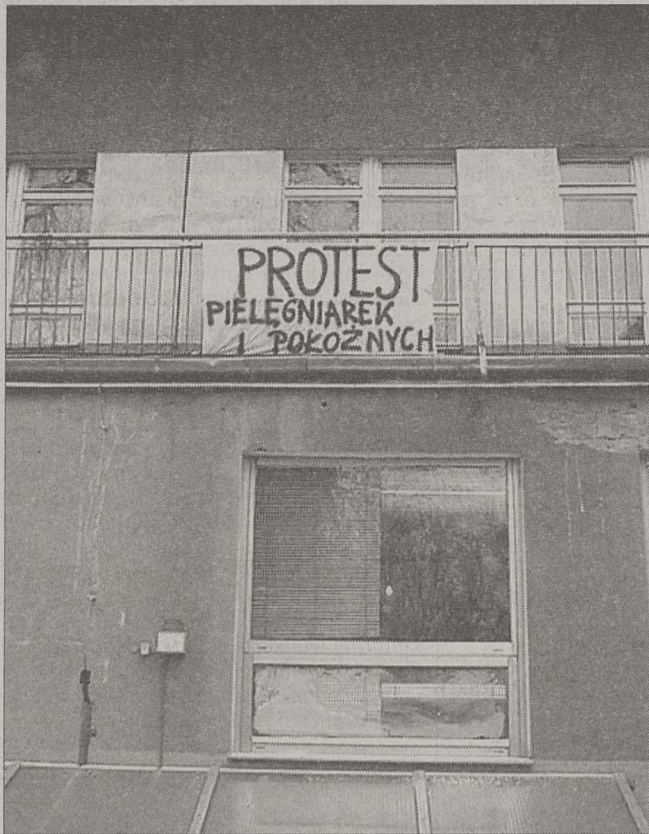 PROTEST
PIELĘGNIAREK
I POŁOŻNYCH